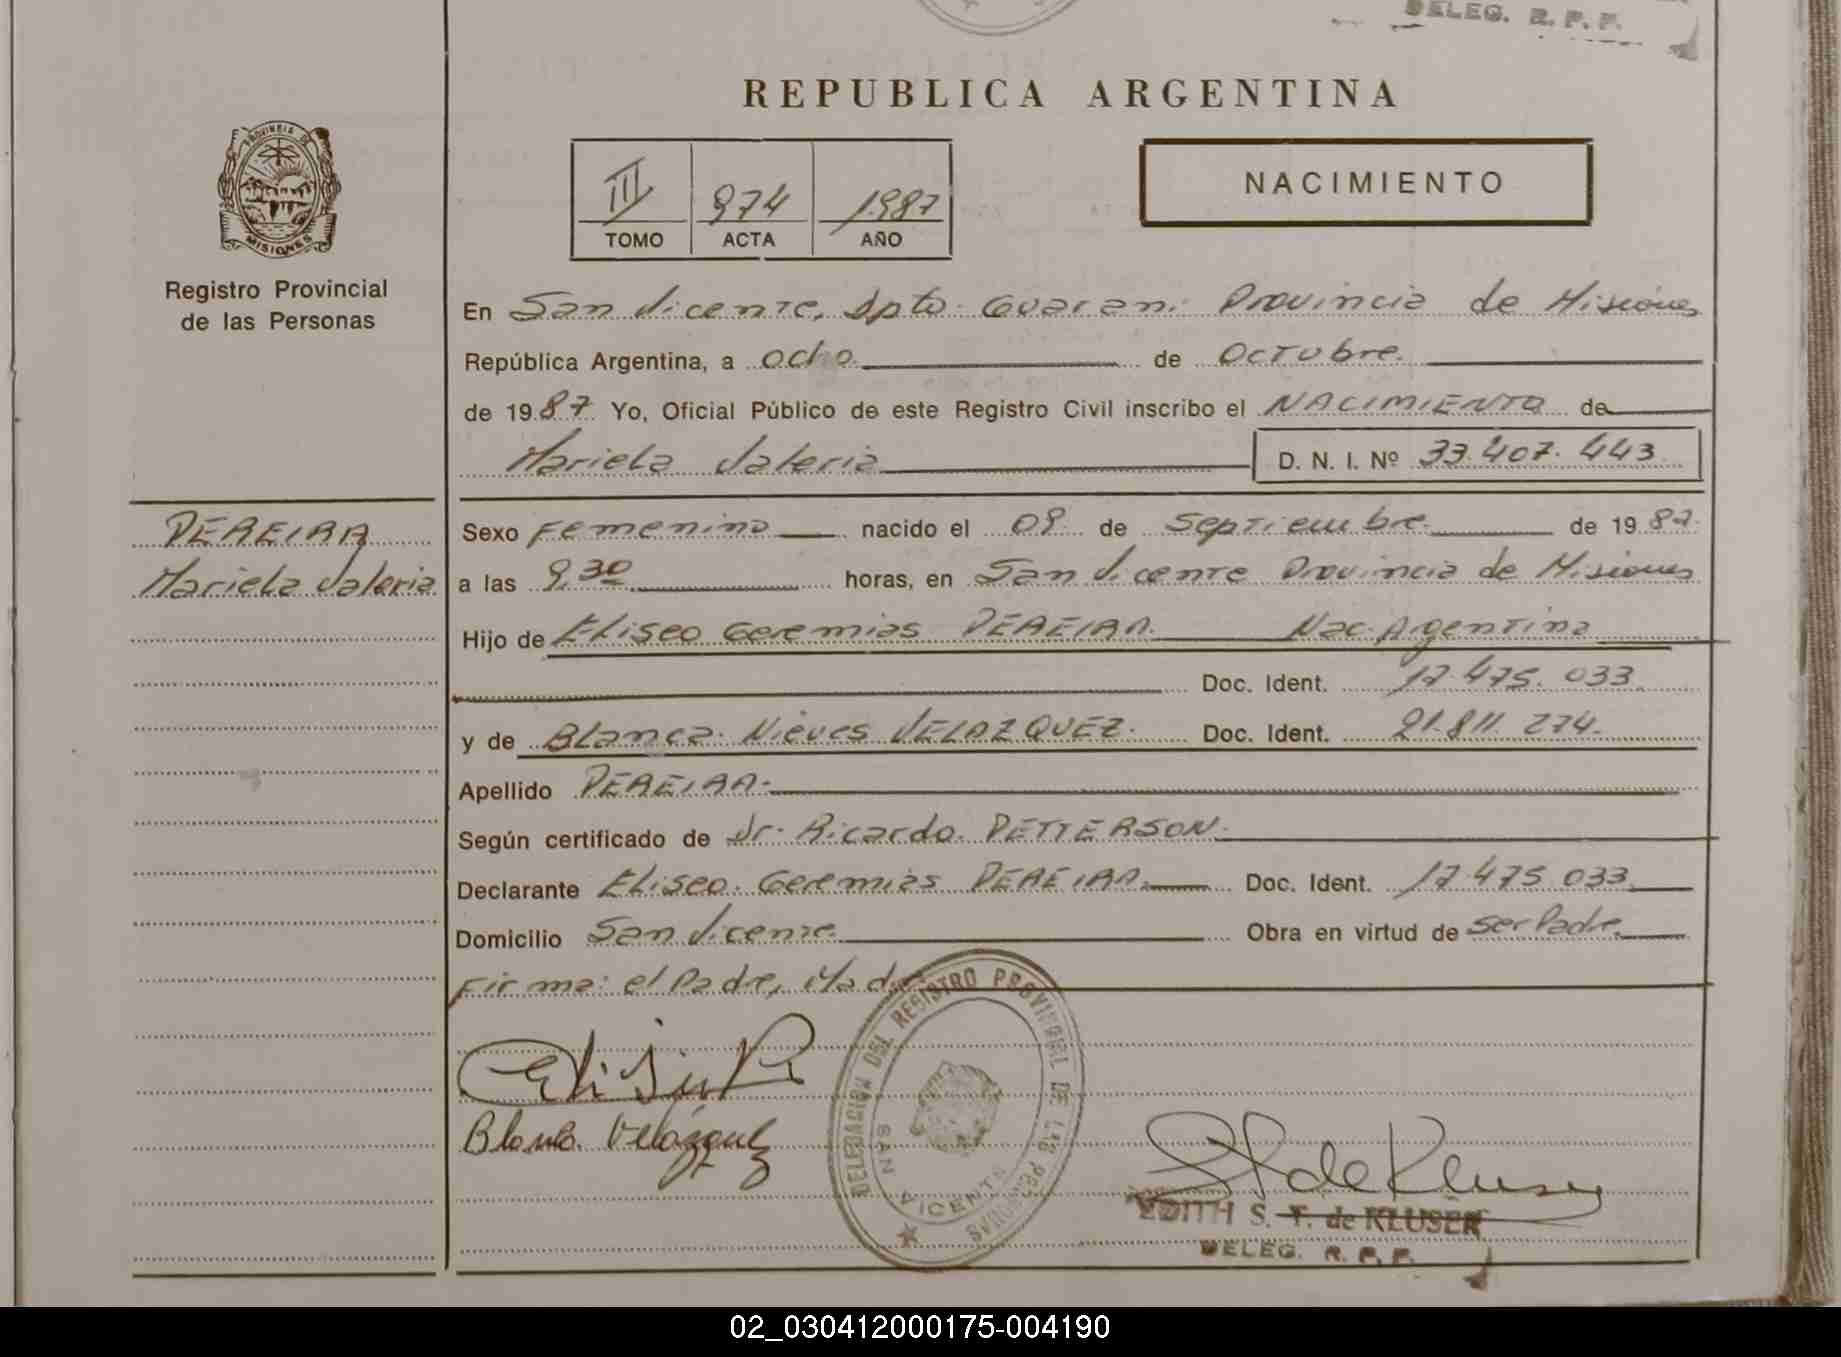 DELEG. R. P. P.
REPUBLICA ARGENTINA
PROVINCIA DE
MISIONES
Registro Provincial
de las Personas
III 974 1987
TOMO ACTA AÑO
NACIMIENTO
En San Vicente, Dpto. Guaraní Provincia de Misiones
República Argentina, a ocho de Octubre.
de 1987 Yo, Oficial Público de este Registro Civil inscribo el NACIMIENTO de
Mariela Valeria D. N. I. Nº 33.407.443
PEREIRA
Mariela Valeria
Sexo Femenino nacido el 09 de Septiembre de 1987
a las 9,30 horas, en San Vicente Provincia de Misiones
Hijo de Eliseo Geremias PEREIRA. Nac. Argentina
Doc. Ident. 17.475.033
y de Blanca Nieves VELAZQUEZ. Doc. Ident. 21.811.274.
Apellido PEREIRA.
Según certificado de Dr. Ricardo PETTERSON.
Declarante Eliseo Geremias PEREIRA. Doc. Ident. 17.475.033
Domicilio San Vicente. Obra en virtud de ser Padre.
Firma: el Padre, Madre
Blanca Velázquez
DELEGACION DEL REGISTRO PROVINCIAL DE LAS PERSONAS
SAN VICENTE
S F de Kluser
EDITH S. F. de KLUSER
DELEG. R. P. P.
02_030412000175-004190